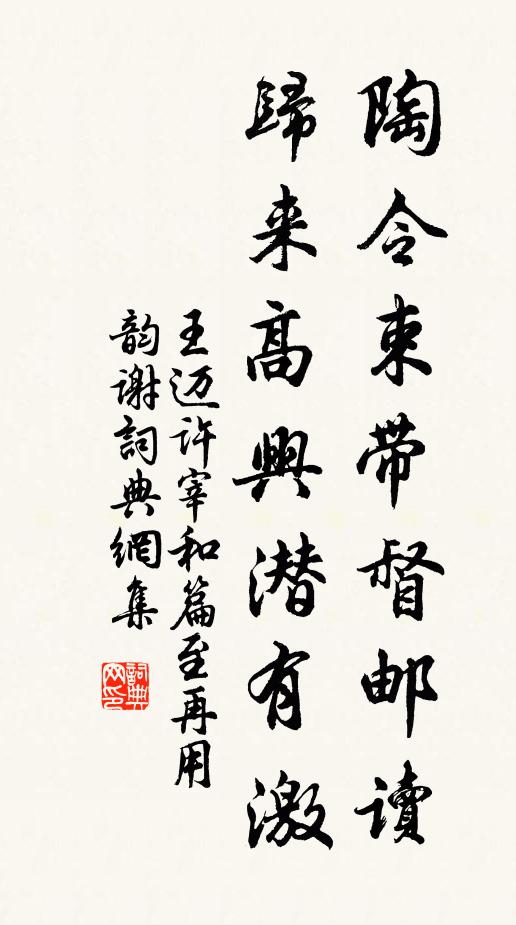 陶令束带督邮读
歸来高興潜有激
王迈许宰和篇至再用
韵谢詞典網集
詞典网印